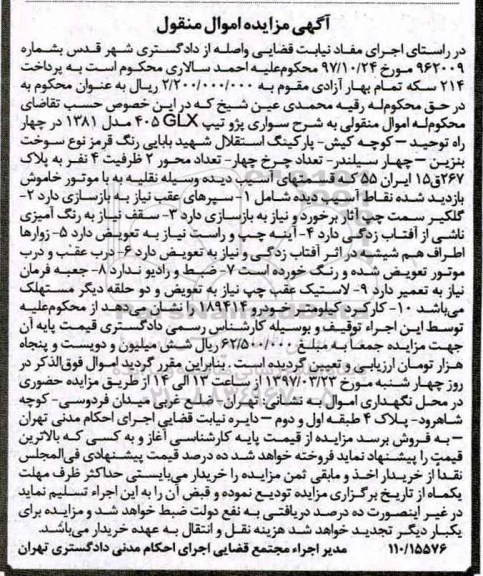 آگهی مزایده اموال منقول
در راستای اجرای مفاد نیابت قضایی واصله از دادگستری شهر قدس بشماره
۹۶۲۰۰۹ مورخ ۹۷/۱۰/۲۴ محکوم‌علیه احمد سالاری محکوم است به پرداخت
۲۱۴ سکه تمام بهار آزادی مقوم به ۲/۲۰۰/۰۰۰/۰۰۰ ریال به عنوان محکوم به
در حق محکوم‌له رقیه محمدی عین شیخ که در این خصوص حسب تقاضای
محکوم‌له اموال منقولی به شرح سواری پژو تیپ GLX ۴۰۵ مدل ۱۳۸۱ در چهار
راه توحید – کوچه کیش- پارکینگ استقلال شهید بابایی رنگ قرمز نوع سوخت
بنزین – چهار سیلندر- تعداد چرخ چهار- تعداد محور ۲ ظرفیت ۴ نفر به پلاک
۲۶۷ق۱۵ ایران ۵۵ که قسمتهای آسیب دیده وسیله نقلیه به با موتور خاموش
بازدید شده نقاط آسیب دیده شامل ۱- سپرهای عقب نیاز به بازسازی دارد ۲-
گلگیر سمت چپ آثار برخورد و نیاز به بازسازی دارد ۳- سقف نیاز به رنگ آمیزی
ناشی از آفتاب زدگی دارد ۴- آینه چپ و راست نیاز به تعویض دارد ۵- زوارها
اطراف هم شیشه در اثر آفتاب زدگی و نیاز به تعویض دارد ۶- درب عقب و درب
موتور تعویض شده و رنگ خورده است ۷- ضبط و رادیو ندارد ۸- جعبه فرمان
نیاز به تعمیر دارد ۹- لاستیک عقب چپ نیاز به تعویض و دو حلقه دیگر مستهلک
می‌باشد ۱۰- کارکرد کیلومتر خودرو ۱۸۹۴۱۴ را نشان می‌دهد از محکوم‌علیه
توسط این اجراء توقیف و بوسیله کارشناس رسمی دادگستری قیمت پایه آن
جهت مزایده جمعاً به مبلغ ۶۲/۵۰۰/۰۰۰ ریال شش میلیون و دویست و پنجاه
هزار تومان ارزیابی و تعیین گردیده است . بنابراین مقرر گردید اموال فوق‌الذکر در
روز چهار شنبه مورخ ۱۳۹۷/۰۳/۲۳ از ساعت ۱۳ الی ۱۴ از طریق مزایده حضوری
در محل نگهداری اموال به نشانی: تهران- ضلع غربی میدان فردوسی- کوچه
شاهرود- پلاک ۴ طبقه اول و دوم – دایره نیابت قضایی اجرای احکام مدنی تهران
– به فروش برسد مزایده از قیمت پایه کارشناسی آغاز و به کسی که بالاترین
قیمت را پیشنهاد نماید فروخته خواهد شد ده درصد قیمت پیشنهادی فی‌المجلس
نقداً از خریدار اخذ و مابقی ثمن مزایده را خریدار می‌بایستی حداکثر ظرف مهلت
یکماه از تاریخ برگزاری مزایده تودیع نموده و قبض آن را به این اجراء تسلیم نماید
در غیر اینصورت ده درصد دریافتی به نفع دولت ضبط خواهد شد و مزایده برای
یکبار دیگر تجدید خواهد شد هزینه نقل و انتقال به عهده خریدار می‌باشد.
۱۱۰/۱۵۵۷۶ مدیر اجراء مجتمع قضایی اجرای احکام مدنی دادگستری تهران